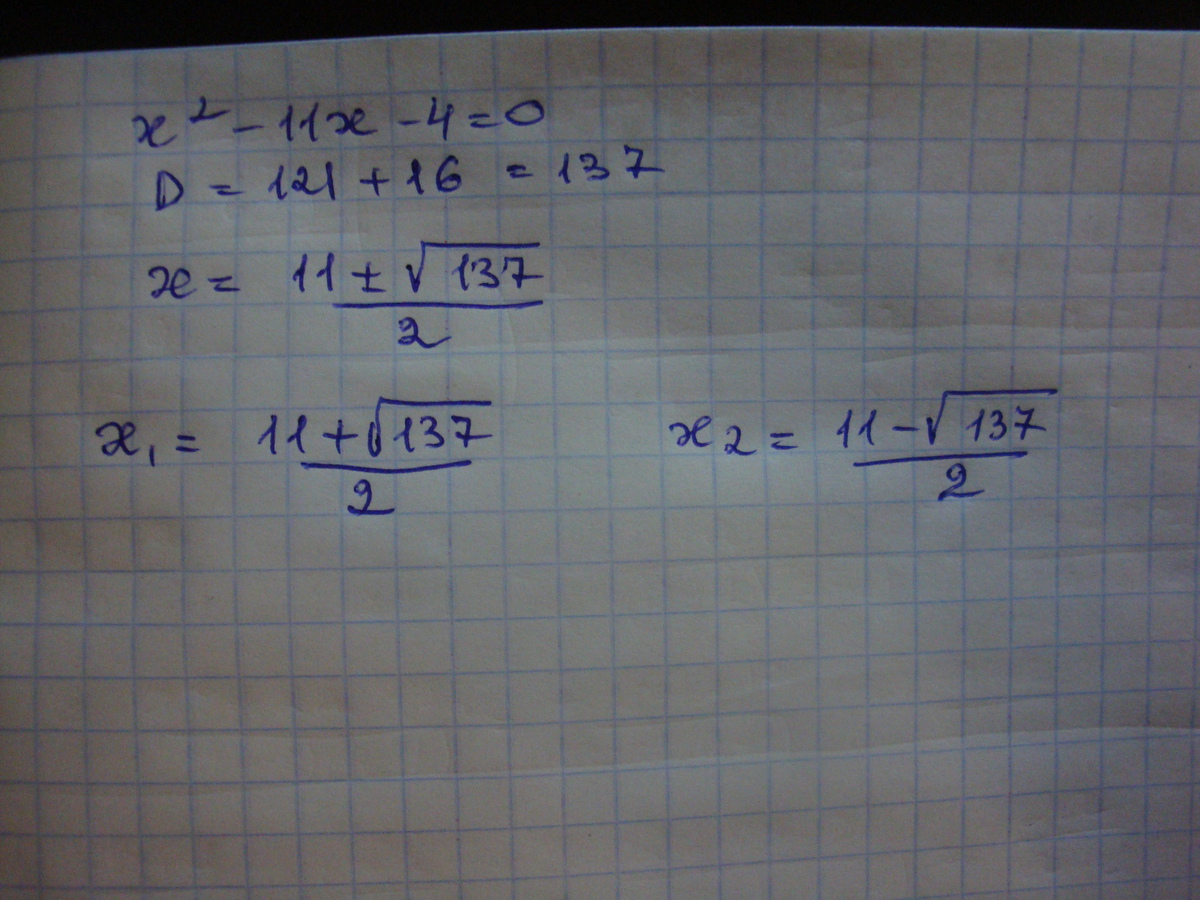 x² - 11x - 4 = 0
D = 121 + 16 = 137
x = (11 ± √137) / 2
x₁ = (11 + √137) / 2    x₂ = (11 - √137) / 2